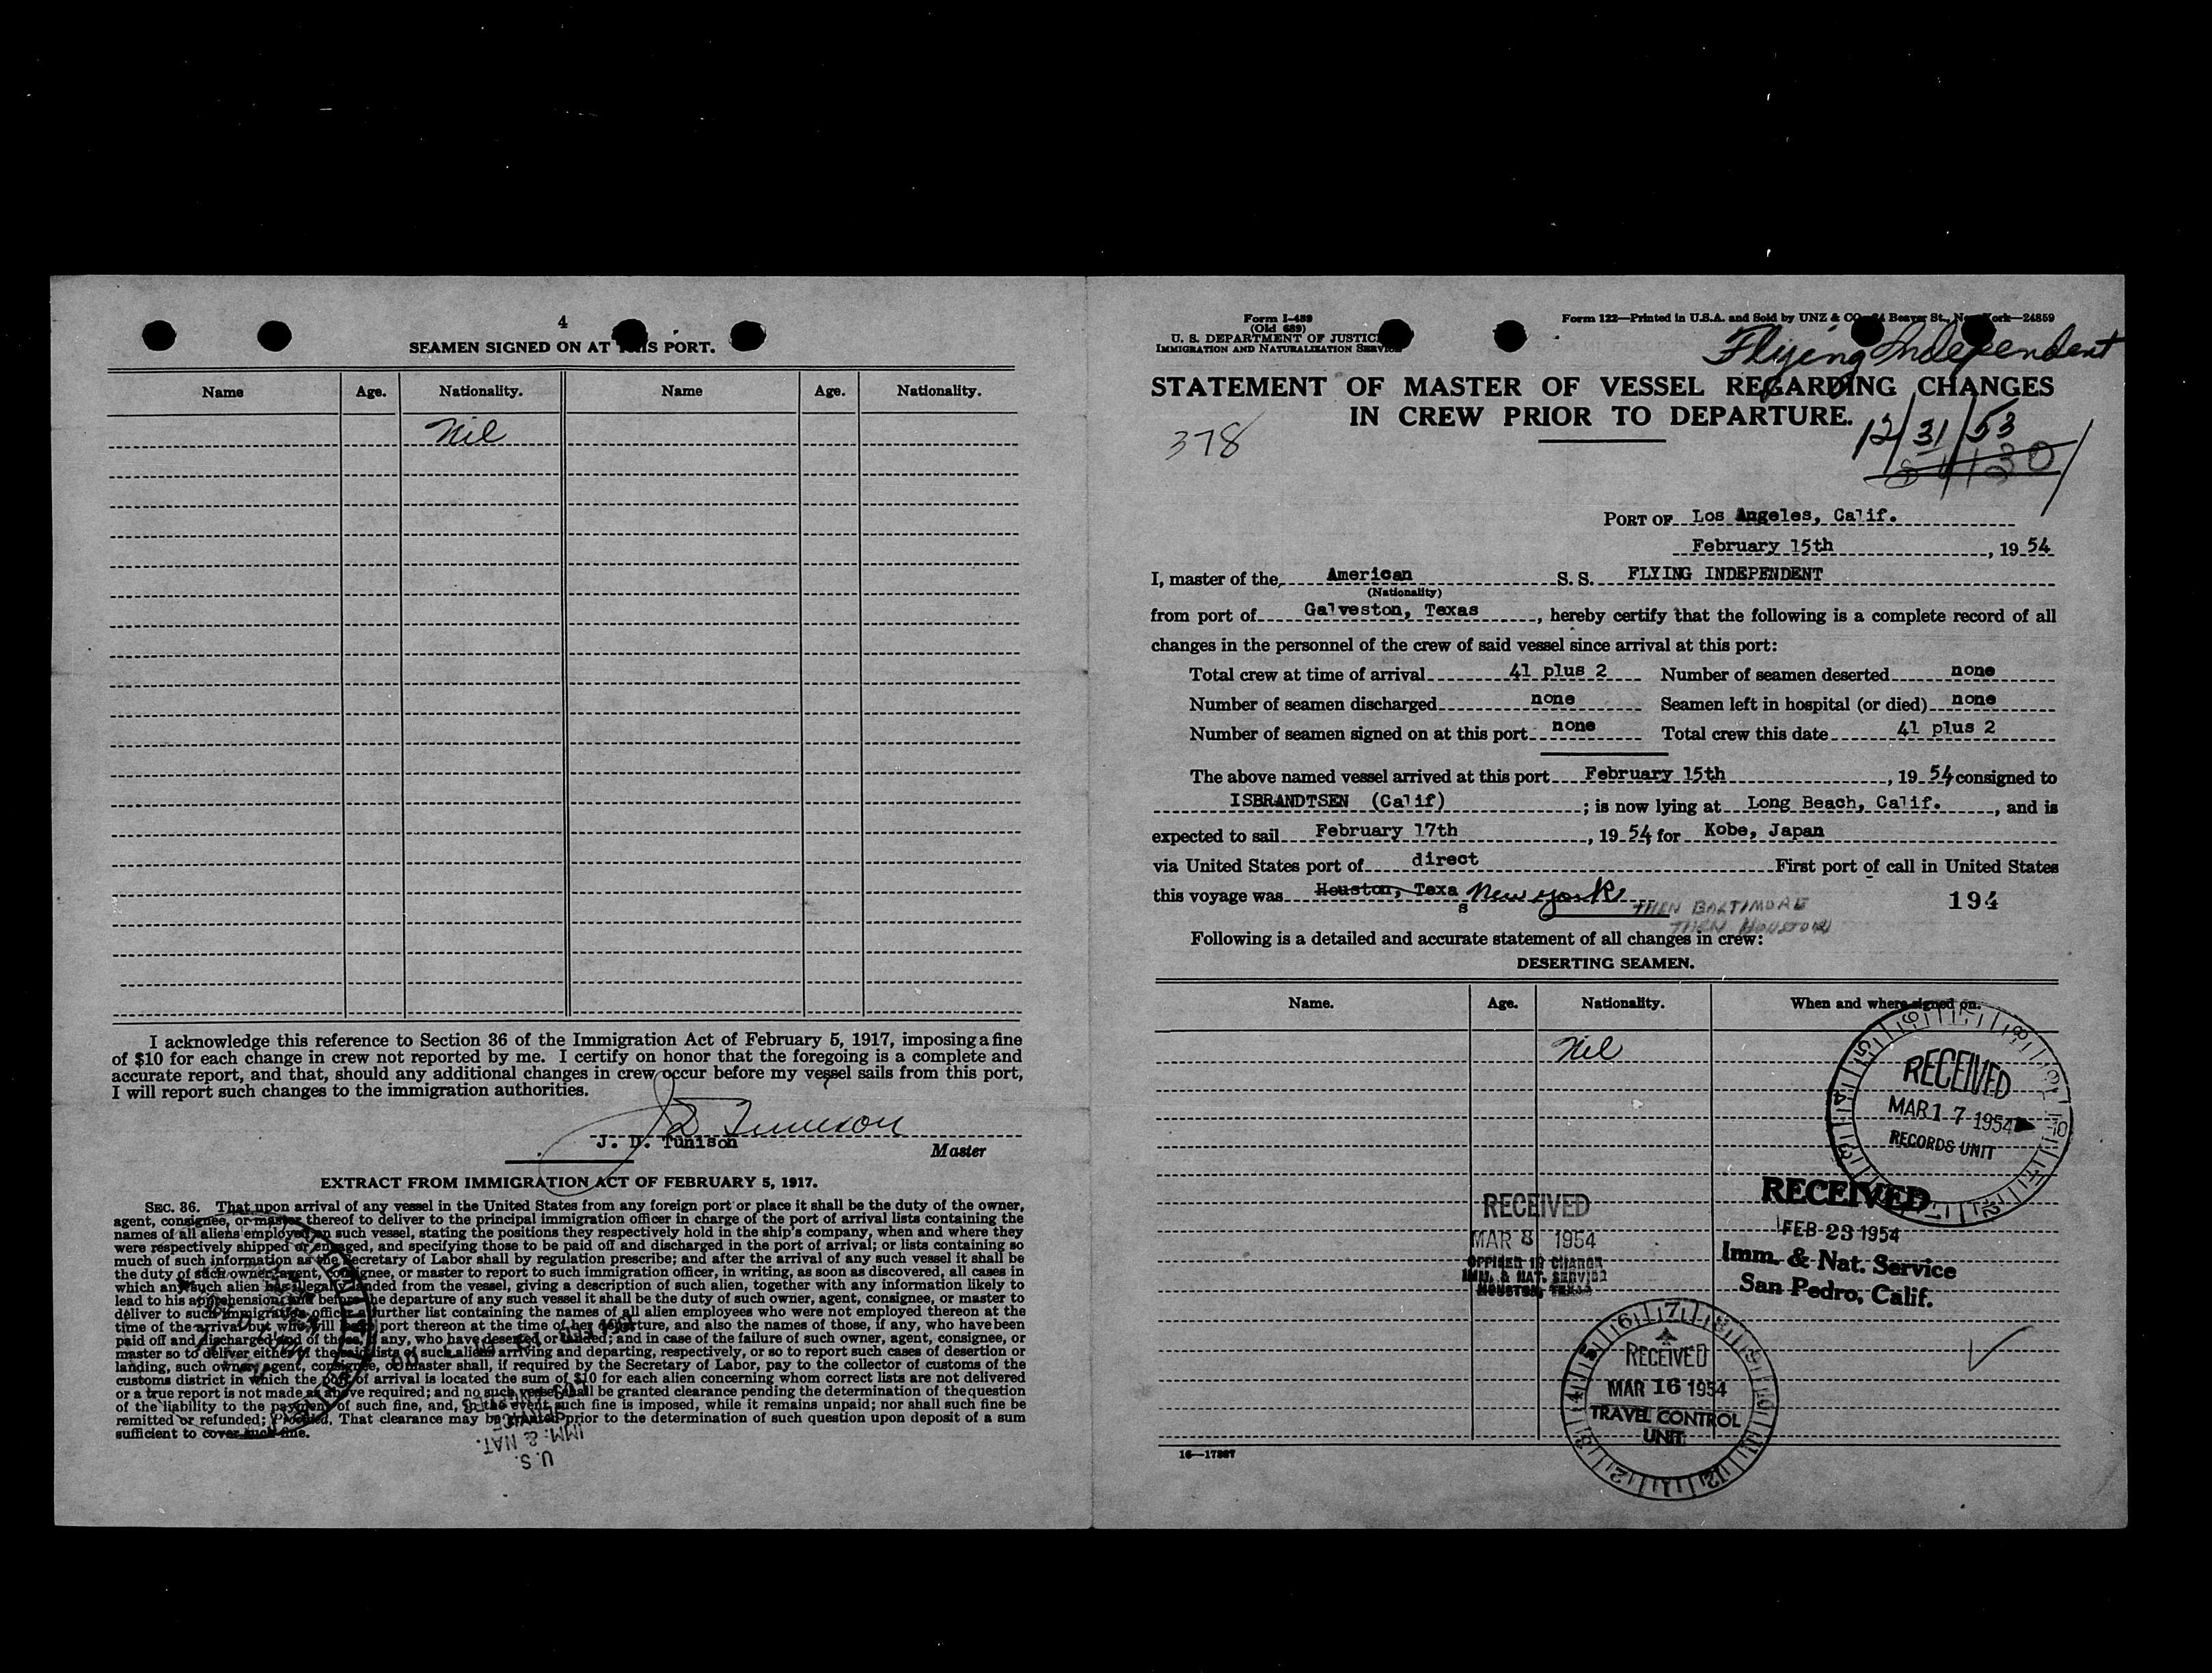 4
SEAMEN SIGNED ON AT THIS PORT.
Name Age. Nationality. Name Age. Nationality.
Nil
I acknowledge this reference to Section 36 of the Immigration Act of February 5, 1917, imposing a fine
of $10 for each change in crew not reported by me. I certify on honor that the foregoing is a complete and
accurate report, and that, should any additional changes in crew occur before my vessel sails from this port,
I will report such changes to the immigration authorities.
J D Tunison
J. D. Tunison
Master
EXTRACT FROM IMMIGRATION ACT OF FEBRUARY 5, 1917.
SEC. 36. That upon arrival of any vessel in the United States from any foreign port or place it shall be the duty of the owner,
agent, consignee, or master thereof to deliver to the principal immigration officer in charge of the port of arrival lists containing the
names of all aliens employed on such vessel, stating the positions they respectively hold in the ship's company, when and where they
were respectively shipped or engaged, and specifying those to be paid off and discharged in the port of arrival; or lists containing so
much of such information as the Secretary of Labor shall by regulation prescribe; and after the arrival of any such vessel it shall be
the duty of such owner, agent, consignee, or master to report to such immigration officer, in writing, as soon as discovered, all cases in
which any such alien has illegally landed from the vessel, giving a description of such alien, together with any information likely to
lead to his apprehension; and before the departure of any such vessel it shall be the duty of such owner, agent, consignee, or master to
deliver to such immigration officer a further list containing the names of all alien employees who were not employed thereon at the
time of the arrival but who will port thereon at the time of her departure, and also the names of those, if any, who have been
paid off and discharged and of those, if any, who have deserted or landed; and in case of the failure of such owner, agent, consignee, or
master so to deliver either of the said lists of such aliens arriving and departing, respectively, or so to report such cases of desertion or
landing, such owner, agent, consignee, or master shall, if required by the Secretary of Labor, pay to the collector of customs of the
customs district in which the port of arrival is located the sum of $10 for each alien concerning whom correct lists are not delivered
or a true report is not made as above required; and no such vessel shall be granted clearance pending the determination of the question
of the liability to the payment of such fine, and, in the event such fine is imposed, while it remains unpaid; nor shall such fine be
remitted or refunded; Provided, That clearance may be granted prior to the determination of such question upon deposit of a sum
sufficient to cover such fine.
U.S.
IMM. & NAT.
SERVICE
Form I-489
(Old 689)
U. S. DEPARTMENT OF JUSTICE
IMMIGRATION AND NATURALIZATION SERVICE
Form 122—Printed in U.S.A. and Sold by UNZ & CO., 24 Beaver St., New York—24859
Flying Independent
STATEMENT OF MASTER OF VESSEL REGARDING CHANGES
IN CREW PRIOR TO DEPARTURE.
378
12/31/53
PORT OF Los Angeles, Calif.
February 15th, 19 54
I, master of the American S. S. FLYING INDEPENDENT
(Nationality)
from port of Galveston, Texas, hereby certify that the following is a complete record of all
changes in the personnel of the crew of said vessel since arrival at this port:
Total crew at time of arrival 41 plus 2 Number of seamen deserted none
Number of seamen discharged none Seamen left in hospital (or died) none
Number of seamen signed on at this port none Total crew this date 41 plus 2
The above named vessel arrived at this port February 15th, 19 54 consigned to
ISBRANDTSEN (Calif); is now lying at Long Beach, Calif., and is
expected to sail February 17th, 19 54 for Kobe, Japan
via United States port of direct First port of call in United States
this voyage was Houston, Texas New York 194
THEN BALTIMORE
THEN HOUSTON
Following is a detailed and accurate statement of all changes in crew:
DESERTING SEAMEN.
Name. Age. Nationality. When and where signed on.
Nil
RECEIVED
MAR 17 1954
RECORDS UNIT
RECEIVED
FEB 23 1954
Imm. & Nat. Service
San Pedro, Calif.
RECEIVED
MAR 8 1954
OFFICER IN CHARGE
IMM. & NAT. SERVICE
HOUSTON, TEXAS
RECEIVED
MAR 16 1954
TRAVEL CONTROL
UNIT
16—17887